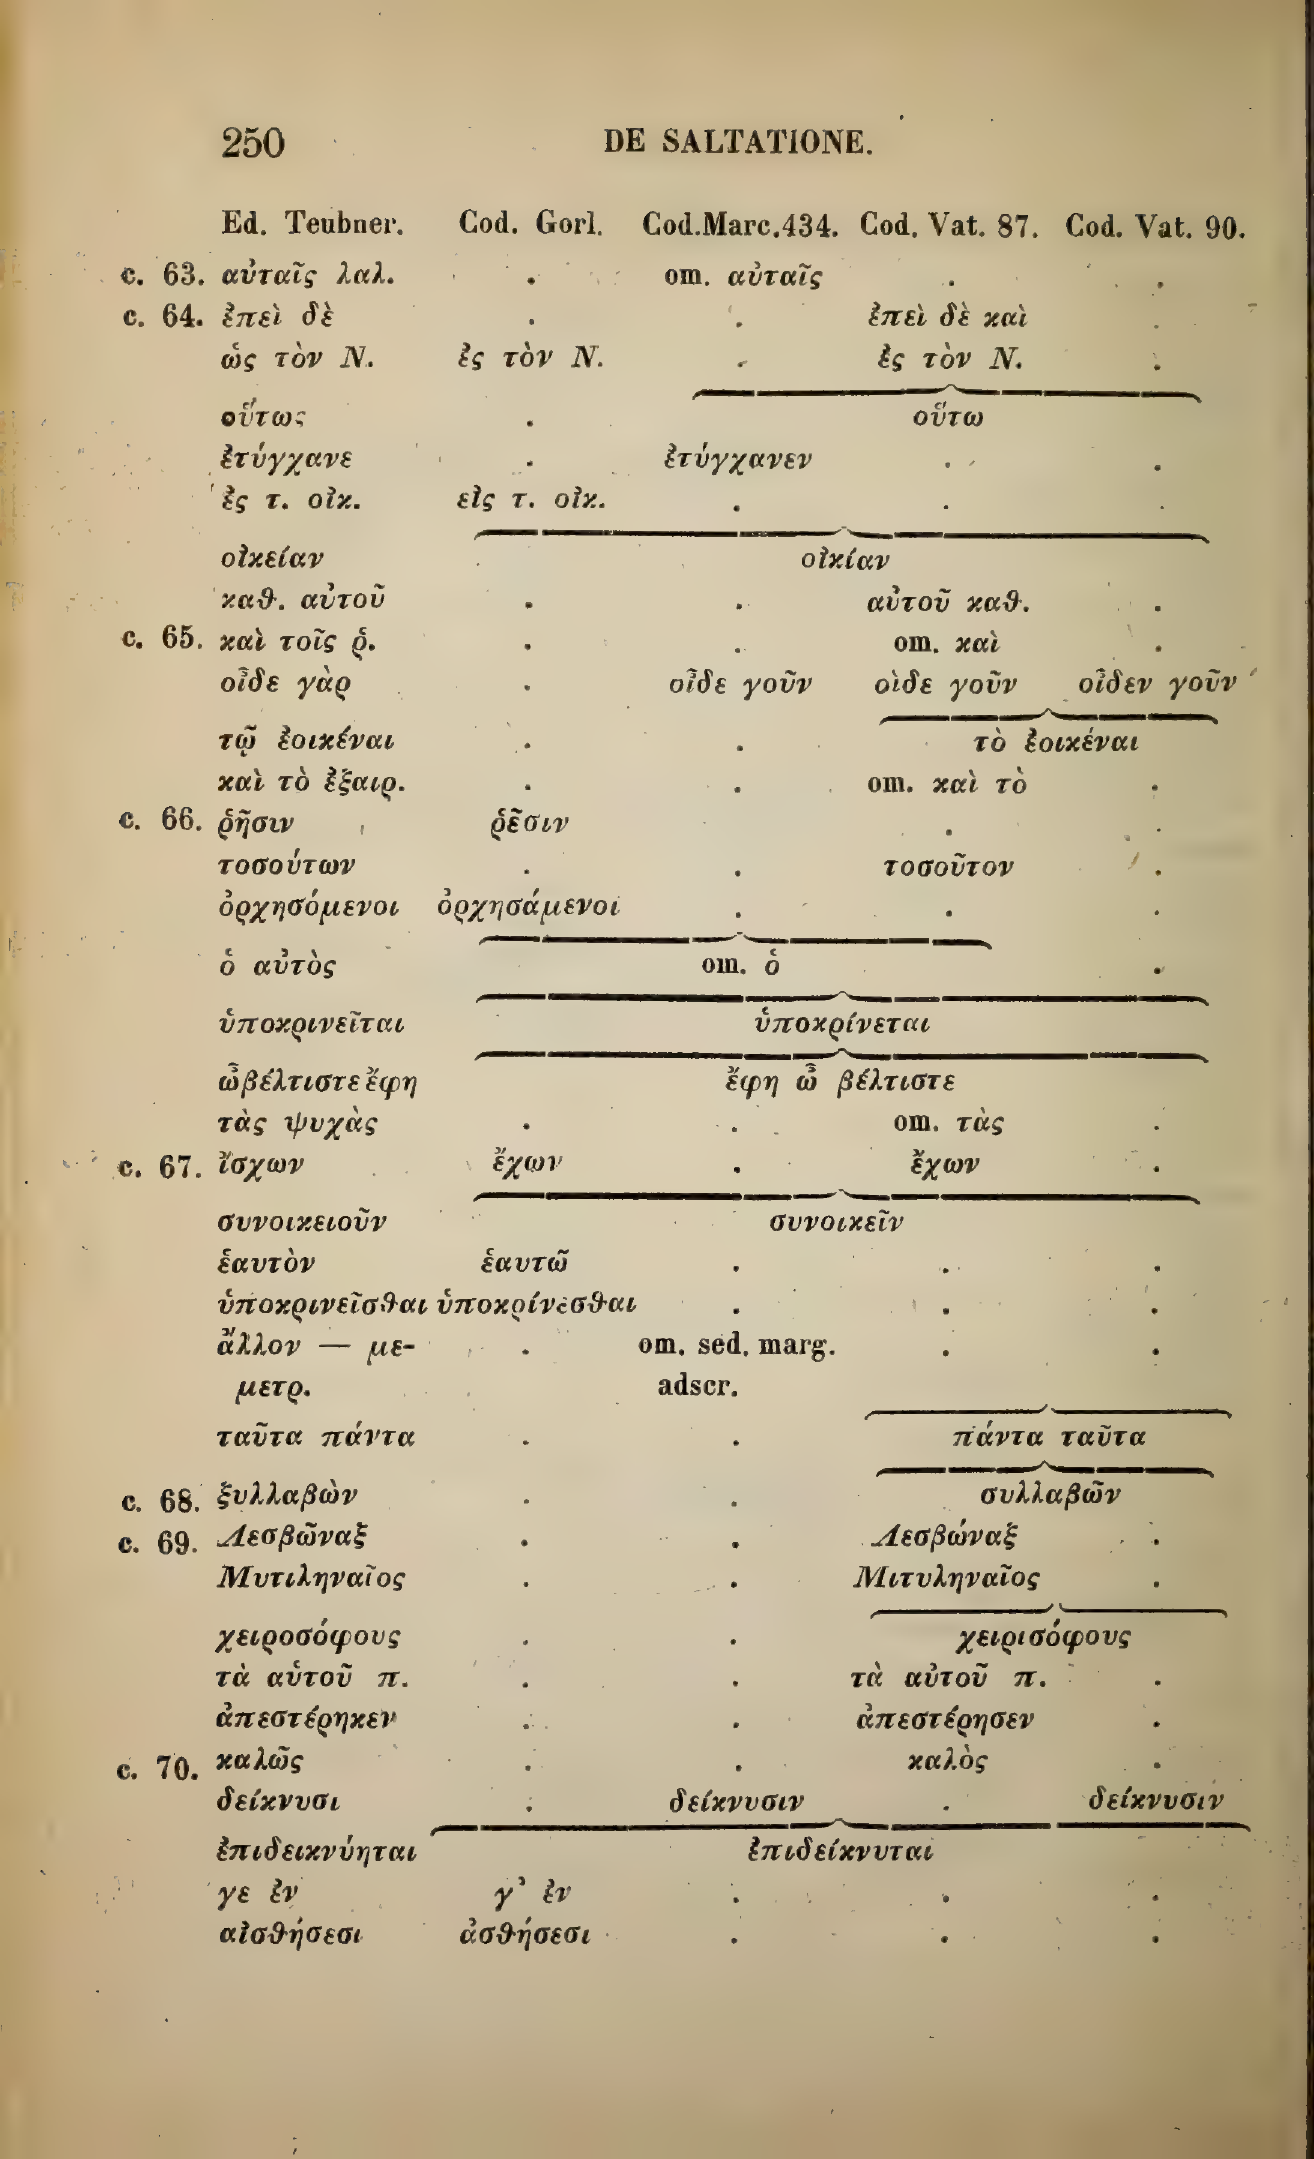 250 DE SALTATIONE.
Ed. Teubner. Cod. Gorl. Cod.Marc.434. Cod. Vat. 87. Cod. Vat. 90.
c. 63. αὐταῖς λαλ. . om. αὐταῖς . .
c. 64. ἐπεὶ δὲ . . ἐπεὶ δὲ καὶ .
ὡς τὸν Ν. ἐς τὸν Ν. . ἐς τὸν Ν. .
οὕτως . οὕτω
ἐτύγχανε . ἐτύγχανεν . .
ἐς τ. οἰκ. εἰς τ. οἰκ. . . .
οἰκείαν οἰκίαν
καθ. αὐτοῦ . . αὐτοῦ καθ. .
c. 65. καὶ τοῖς ῥ. . . om. καὶ .
οἶδε γὰρ . οἶδε γοῦν οἰδε γοῦν οἶδεν γοῦν
τῷ ἐοικέναι . . τὸ ἐοικέναι
καὶ τὸ ἐξαιρ. . . om. καὶ τὸ .
c. 66. ῥῆσιν ῥεῖσιν . . .
τοσούτων . . τοσοῦτον .
ὀρχησόμενοι ὀρχησάμενοι . . .
ὁ αὐτὸς om. ὁ .
ὑποκρινεῖται ὑποκρίνεται
ὦβέλτιστε ἔφη ἔφη ὦ βέλτιστε
τὰς ψυχὰς . . om. τὰς .
c. 67. ἴσχων ἔχων . ἔχων .
συνοικειοῦν συνοικεῖν
ἑαυτὸν ἑαυτῶ . . .
ὑποκρινεῖσθαι ὑποκρίνεσθαι . . .
ἄλλον — με- . om. sed. marg. . .
μετρ. adscr.
ταῦτα πάντα . . πάντα ταῦτα
c. 68. ξυλλαβὼν . . συλλαβῶν
c. 69. Λεσβῶναξ . . Λεσβώναξ .
Μυτιληναῖος . . Μιτυληναῖος .
χειροσόφους . . χειρισόφους
τὰ αὑτοῦ π. . . τὰ αὐτοῦ π. .
ἀπεστέρηκεν . . ἀπεστέρησεν .
c. 70. καλῶς . . καλὸς .
δείκνυσι . δείκνυσιν . δείκνυσιν
ἐπιδεικνύηται ἐπιδείκνυται
γε ἐν γ᾽ ἐν . . .
αἰσθήσεσι ἀσθήσεσι . . .